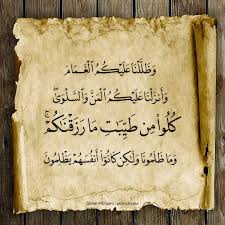 وَظَلَّلْنَا عَلَيْكُمُ الْغَمَامَ
وَأَنزَلْنَا عَلَيْكُمُ الْمَنَّ وَالسَّلْوَىٰ ۖ
كُلُوا مِن طَيِّبَاتِ مَا رَزَقْنَاكُمْ ۖ
وَمَا ظَلَمُونَا وَلَٰكِن كَانُوا أَنفُسَهُمْ يَظْلِمُونَ